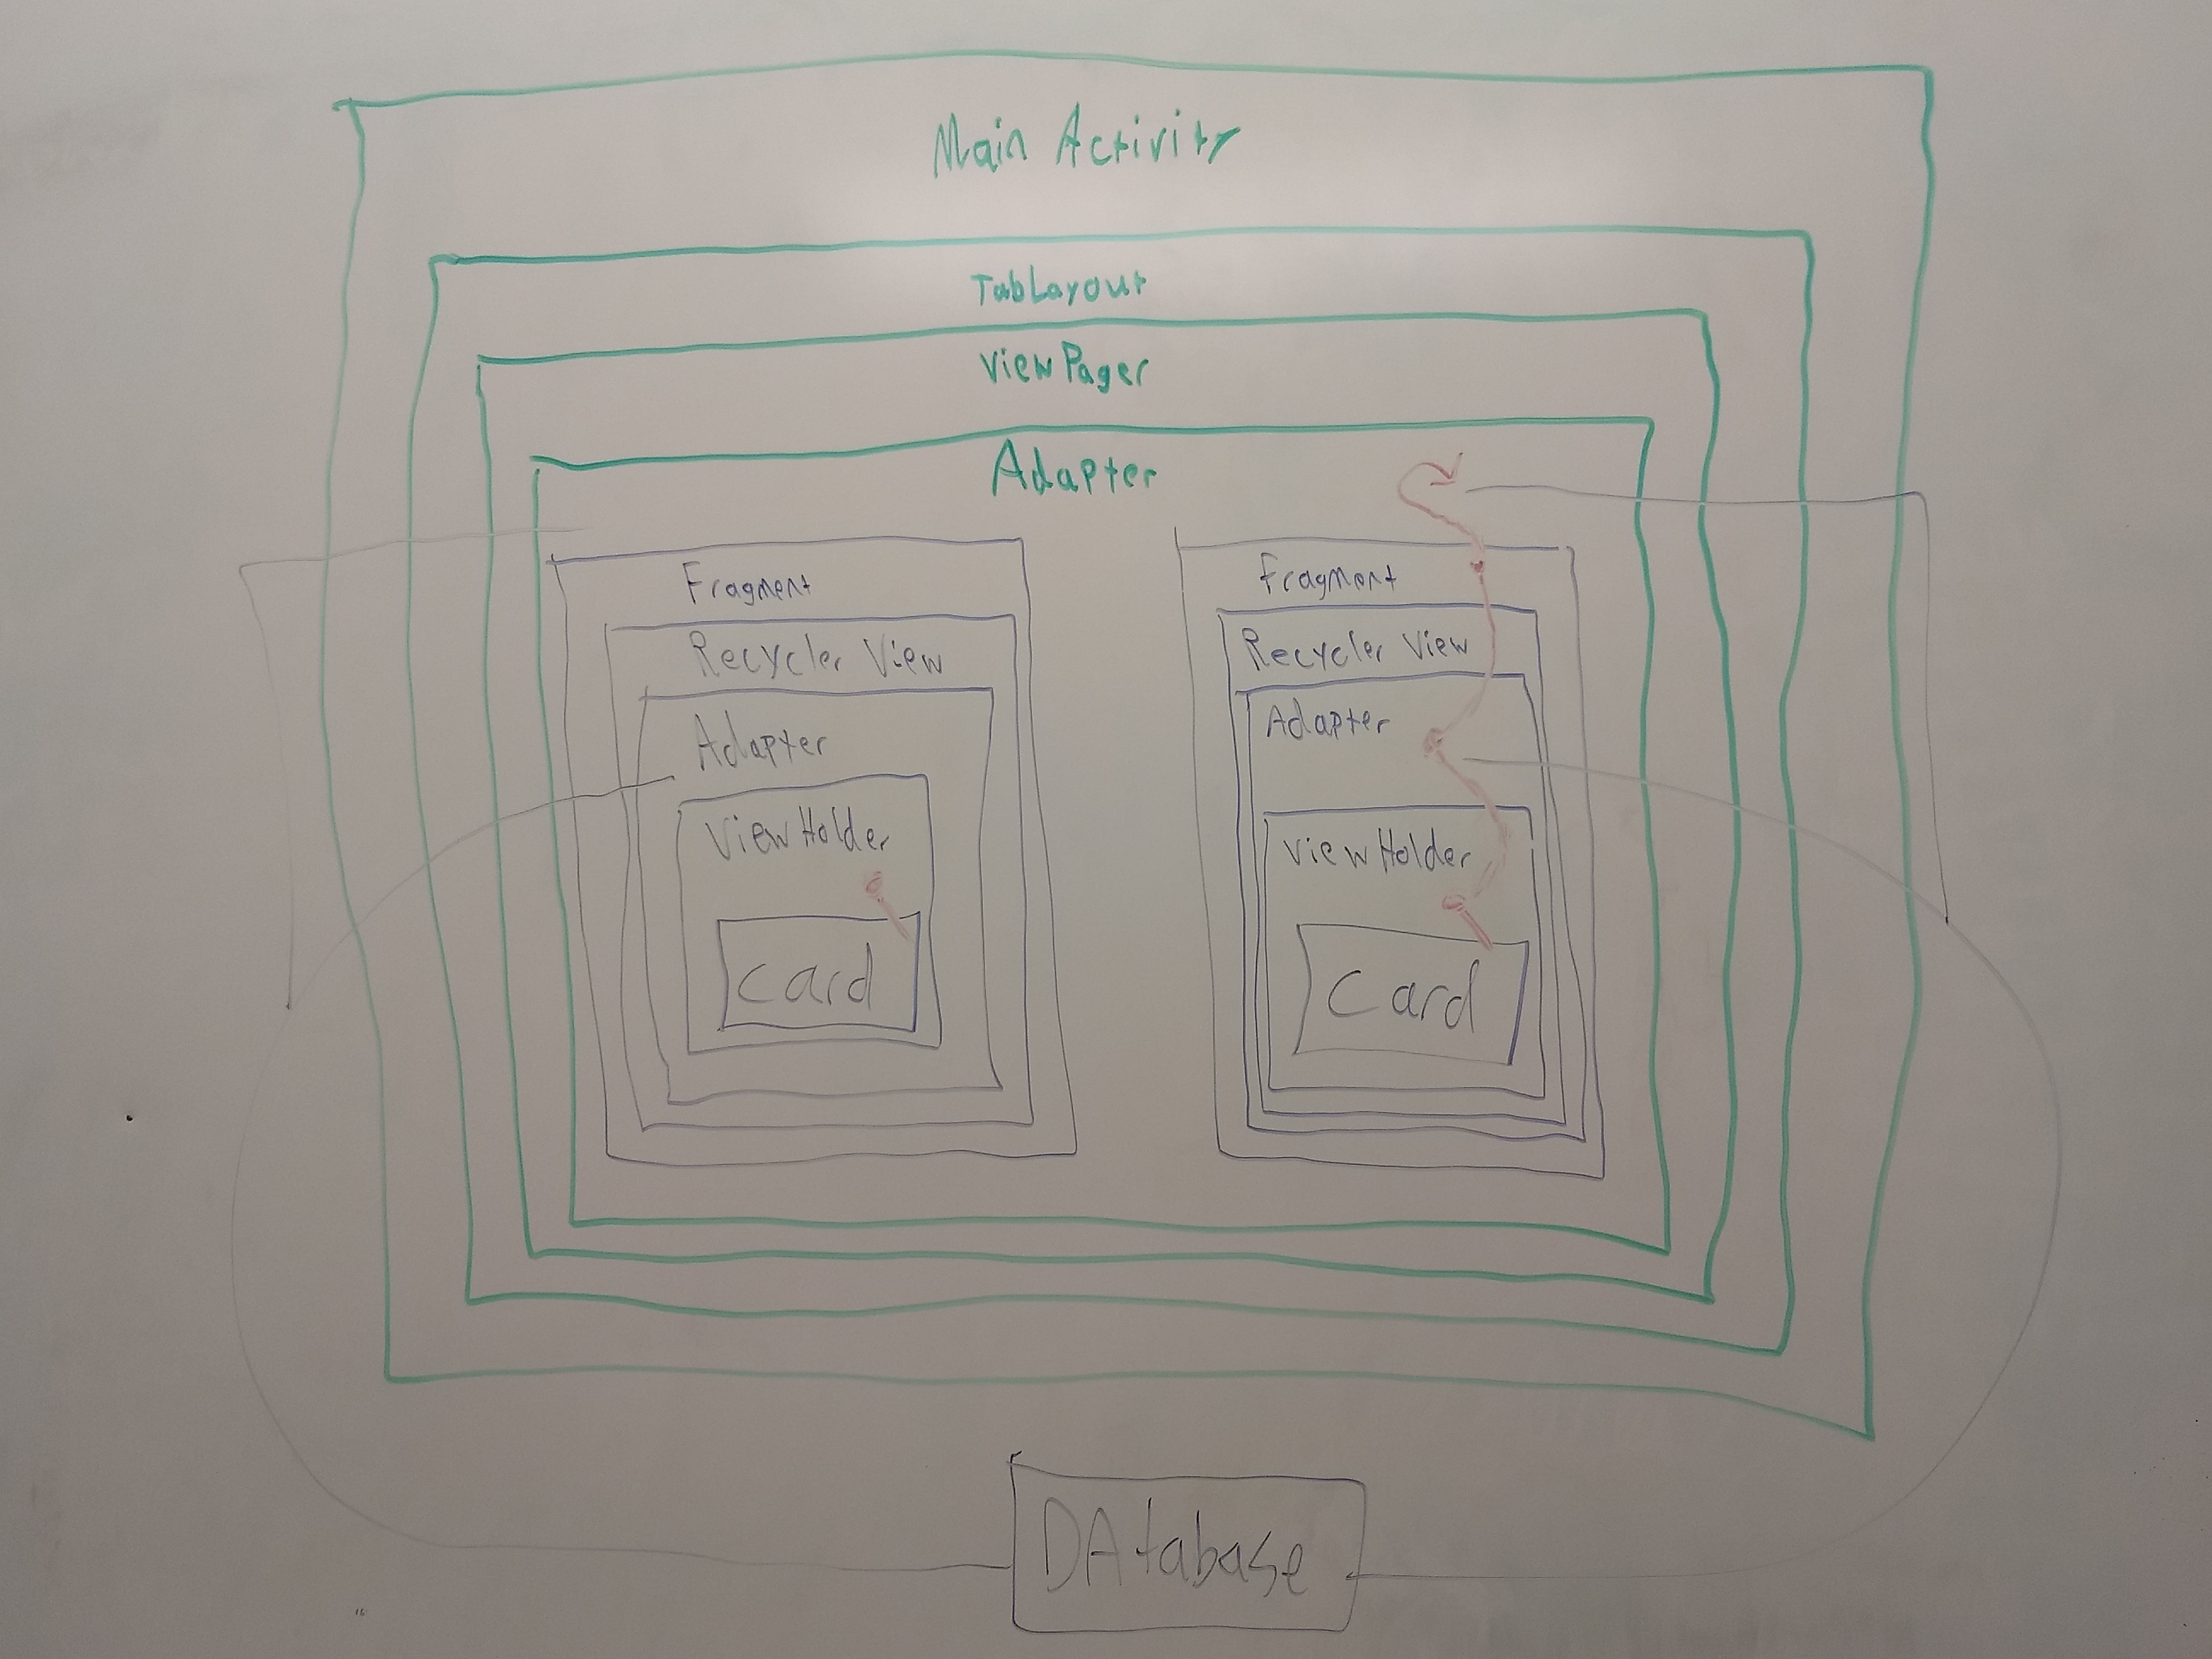 Main Activity
TabLayout
ViewPager
Adapter
Fragment
Recycler View
Adapter
ViewHolder
Card
Fragment
Recycler View
Adapter
ViewHolder
Card
DAtabase